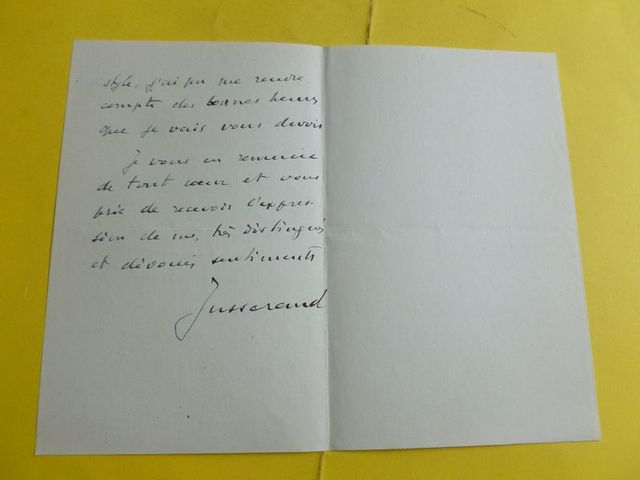 style, j'ai pu me rendre
compte des bonnes heures
que je vais vous devoir
Je vous en remercie
de tout cœur et vous
prie de recevoir l'expres-
sion de mes très distingués
et dévoués sentiments
Jusserand